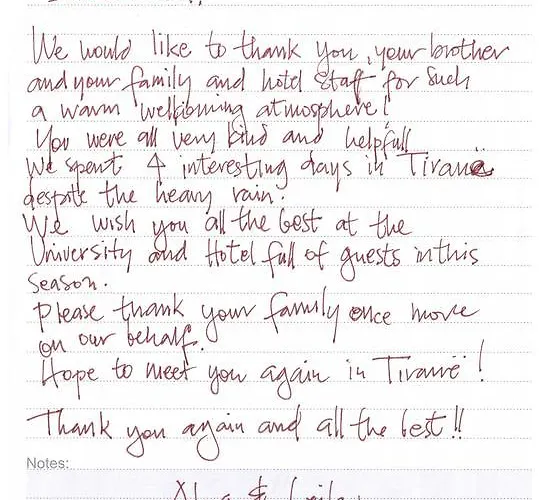 We would like to thank you, your brother
and your family and hotel staff for such
a warm wellcoming atmosphere!
You were all very kind and helpfull
We spent 4 interesting days in Tirana
despite the heavy rain.
We wish you all the best at the
University and Hotel full of guests in this
season.
Please thank your family once more
on our behalf.
Hope to meet you again in Tiranë!
Thank you again and all the best!!
Notes: